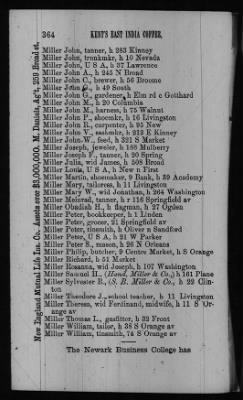 364 KENT'S EAST INDIA COFFEE,
Miller John, tanner, h 283 Kinney
Miller John, trunkmkr, h 10 Nevada
Miller John, U S A, h 37 Lawrence
Miller John A., h 245 N Broad
Miller John C., brewer, h 56 Broome
Miller John G., h 49 South
Miller John G., gardener, h Elm rd c Gotthard
Miller John M., h 20 Columbia
Miller John M., harness, h 75 Walnut
Miller John P., shoemkr, h 16 Livingston
Miller John R., carpenter, h 95 New
Miller John V., sashmkr, h 212 E Kinney
Miller John W., feed, h 321 S Market
Miller Joseph, jeweler, h 188 Mulberry
Miller Joseph F., tanner, h 20 Spring
Miller Julia, wid James, h 508 Broad
Miller Louis, U S A, h New n First
Miller Martin, shoemaker, 9 Bank, h 39 Academy
Miller Mary, tailoress, h 11 Livingston
Miller Mary W., wid Jonathan, h 264 Washington
Miller Meinrad, tanner, h r 116 Springfield av
Miller Obadiah H., h flagman, h 27 Ogden
Miller Peter, bookkeeper, h 1 Linden
Miller Peter, grocer, 21 Springfield av
Miller Peter, tinsmith, h Oliver n Sandford
Miller Peter, U S A, h 21 W Parker
Miller Peter S., mason, h 26 N Orleans
Miller Philip, butcher, 9 Centre Market, h S Orange
Miller Richard, h 51 Market
Miller Rosanna, wid Joseph, h 107 Washington
Miller Samuel H., (Hood, Miller & Co.,) h 161 Plane
Miller Sylvester B., (S. B. Miller & Co., h 22 Clin-
ton
Miller Theodore J., school teacher, h 11 Livingston
Miller Theresa, wid Ferdinand, midwife, h 11 S Or-
ange av
Miller Thomas L., gasfitter, h 32 Front
Miller William, tailor, h 38 S Orange av
Miller William, tinsmith, 74 S Orange av
The Newark Business College has
New England Mutual Life Ins. Co. Assets over $3,000,000. M. Daniell, Ag't, 259 Broad st.